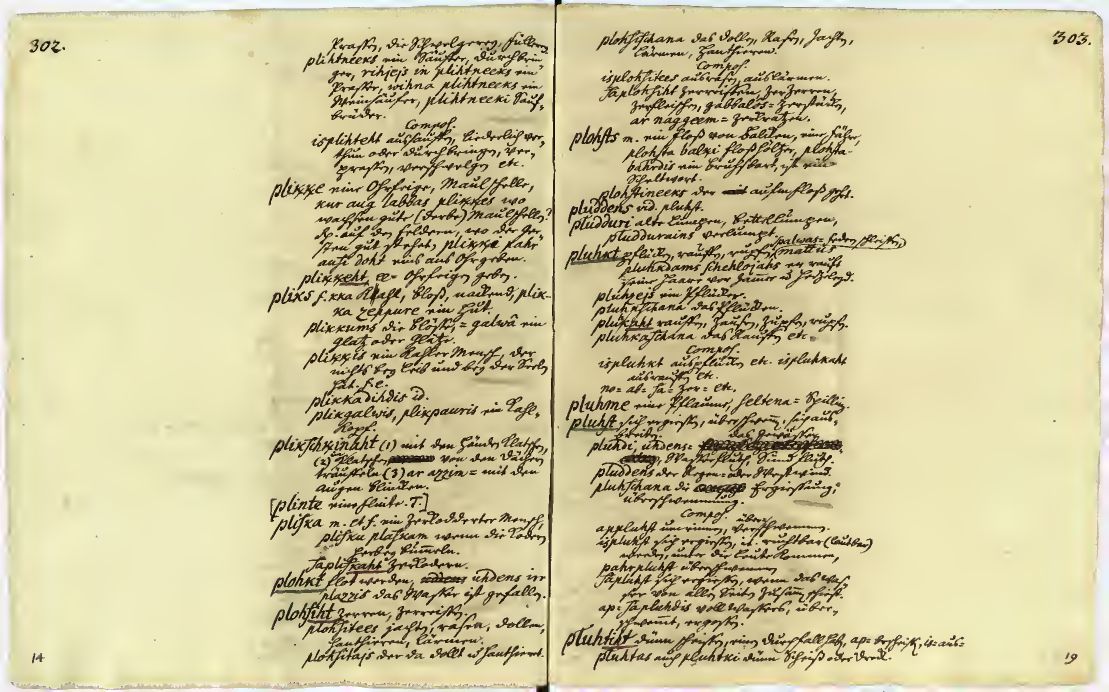 302.
Prassen, die Schwelgerey, Füllerey
plihtneeks ein Säufer, Durchbrin-
ger, rihjejs in plihtneeks ein
Prasser, wihna plihtneeks ein
Weinsäufer, plihtneeki Sauf-
brüder.
Compos.
isplihteht aussauffen, liederlich ver-
thun oder durchbringen, ver-
prassen, verschwelgen etc.
plikke eine Ohrfeige, Maulschelle,
kur aug labbas plikkes wo
wachsen gute (derbe) Maulschellen?
auf den Feldern, wo der Ger-
sten gut stehet, plikke pahr
ausi doht eins aus Ohr geben.
plikkeht, Ohrfeigen geben.
pliks f. kka Kahl, bloß, nackend, plik-
ka zeppure ein Hut.
plikkums die Blöße, = galwâ ein
Glatz oder Glatze.
plikkis ein Kahler Mensch, der
nichts bey Leib und bey der Seelen
hat. f. e.
plikkadihdis id.
plikgalwis, plikpauris ein Kahl-
kopf.
plikschkinaht (1) mit den Händen klatschen,
(2) klatschen, von den Dächern
träuffeln (3) ar azzim = mit den
Augen blinken.
[plinte eine Flinte. T.]
pliska m. et f. ein zerlodderter Mensch,
plisku plaskam wenn die Lodern
herbey bummeln.
sapliskaht zerlodern.
plohkt flot werden, uhdens ir
plazzis das Wasser ist gefallen.
plohsiht zerren, zerreissen.
plohsitees jachten, rasen, dollen,
hanthieren, lärmen.
plohsitajs der da dollt u hanthiert.
14
303.
plohsischana das Dollen, Rasen, Jachten,
Lärmen, Hanthieren.
Compos.
isplohsitees ausrasen, auslärmen.
saplohsiht zerreissen, zerzerren,
zerfleischen, gabbalos = zerstücken,
ar naggeem = zerkratzen.
plohsts m. ein Floß von Balken, eine Fähre,
plohsta balki Floßhölzer, plohsta-
bahrdis ein Bruchbart, ist ein
Scheltwort.
plohstineeks der aufm Floß geht.
pluddens vid. pluhst.
pludduri alte Lumpen, Bettellumpen,
pluddurains verlumpt.
pluhkt pflücken, rauffen, rupfen, mattus
palwas = Federn schleissen,
pluhkdams schehlojahs er raufft
seine Haare vor Jammer u Herzleyd.
pluhzejs ein Pflücker.
pluhkschana das Pflücken.
pluhkaht rauffen, Zausen, Zupfen, rupfen.
pluhkaschana das Rauffen etc.
Compos.
ispluhkt auspflücken etc. ispluhkaht
ausrauffen etc.
no = ab = sa = zer = etc.
pluhme eine Pflaume, seltena = Spilling.
pluhst sich ergiessen, überschwemmen, sich aus-
breiten.
pluhdi, uhdens = das Gewässer,
Wasserfluth, Sünd Fluth.
pluddens der Regen = oder Westwind.
pluhschana die Ergiessung,
überschwemmung.
Compos.
appluhst umrinnen, überschwemmen.
ispluhst sich ergiessen, it. ruchtbar (lautbar)
werden, unter die Leute kommen,
pahrpluhst überschwemmen
sapluhst sich ergiessen, wenn das Was-
ser von allen Seiten zusammen fliesst.
ap = sapluhdis voll Wassers, über-
schwemmt, ergossen.
pluhtiht dünn scheissen, einen Durchfall haben, ap = bescheissen, is = aus =
pluhtas auch pluhtki dünn Scheiß oder Dreck.
19